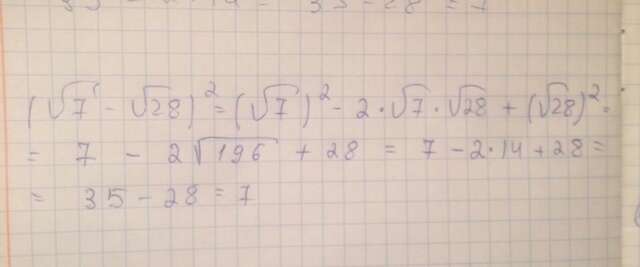 35 - 28 = 7
(√7 - √28)² = (√7)² - 2·√7·√28 + (√28)² =
= 7 - 2√196 + 28 = 7 - 2·14 + 28 =
= 35 - 28 = 7